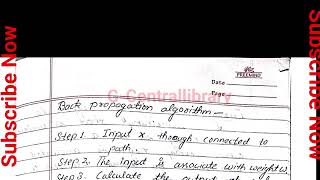 Subscribe Now
FREEMIND
Date
Page
G-Centrallibrary
Back propagation algorithm -
Step 1. Input x through connected to
path.
Step 2. The input is associate with weight w.
Step 3. Calculate the output
Subscribe Now